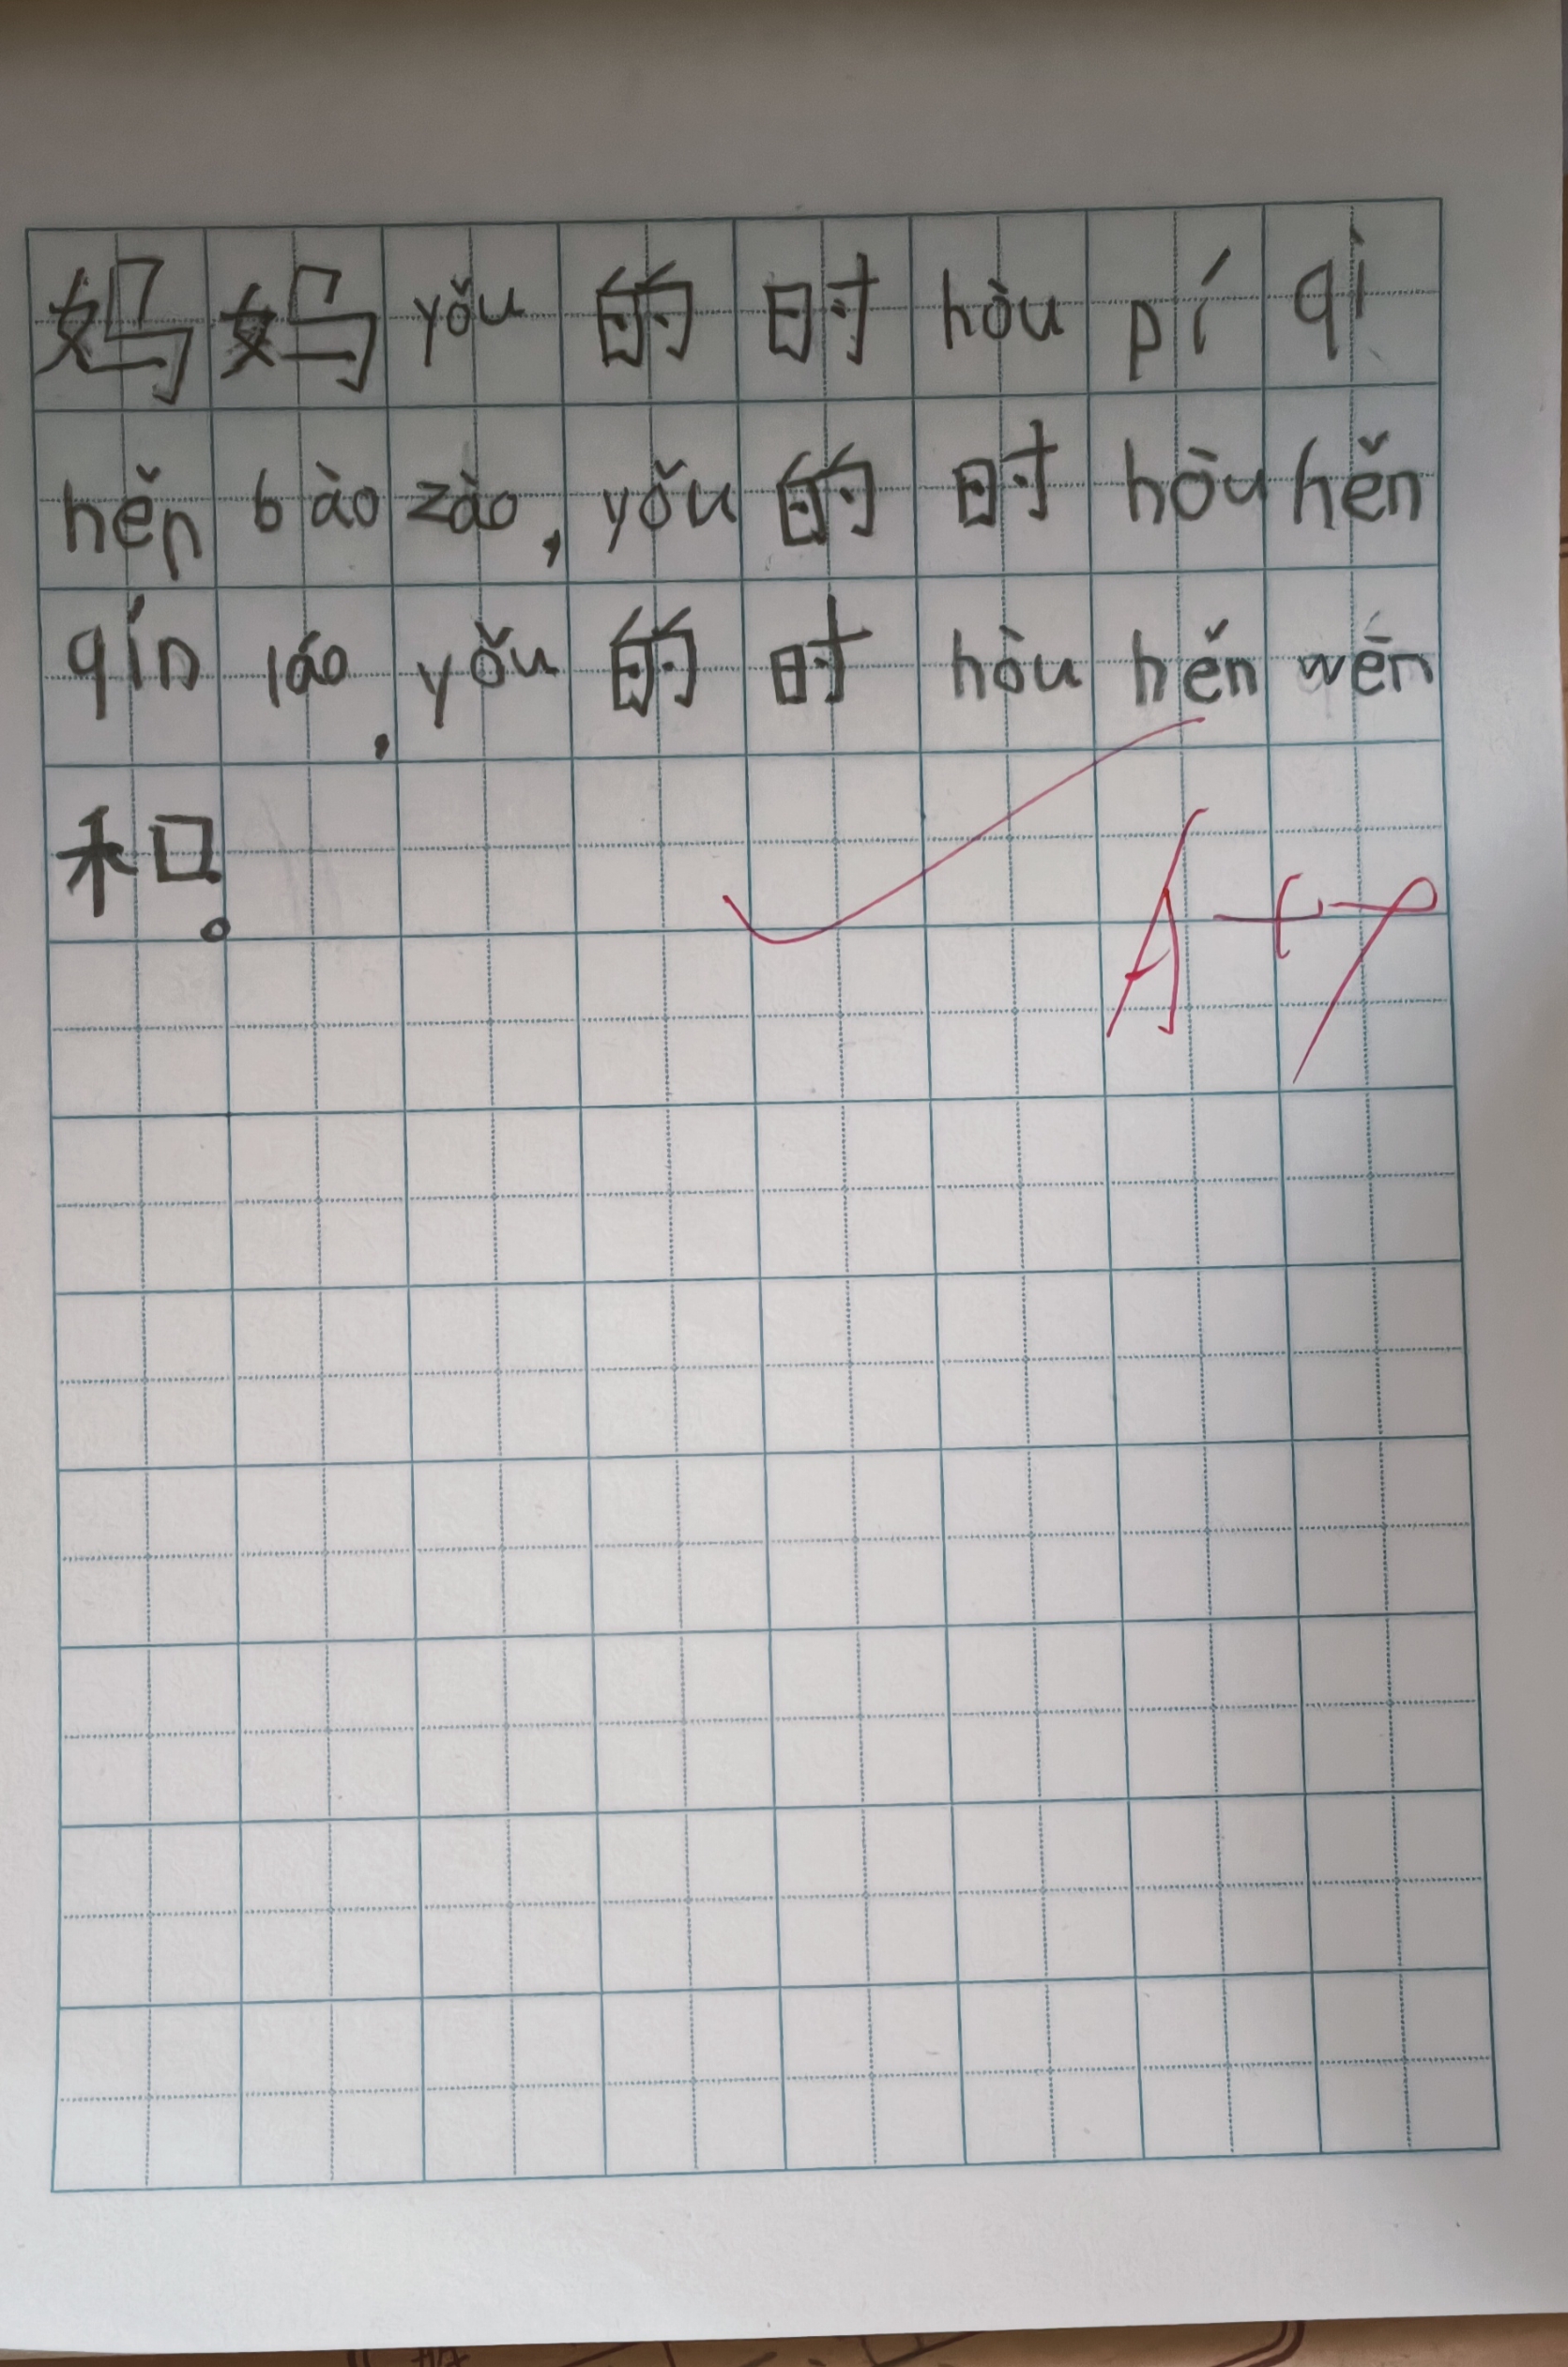 妈妈yǒu的时hòupíqì
hěnbàozào,yǒu的时hòuhěn
qínláo,yǒu的时hòuhěnwēn
和。
A+